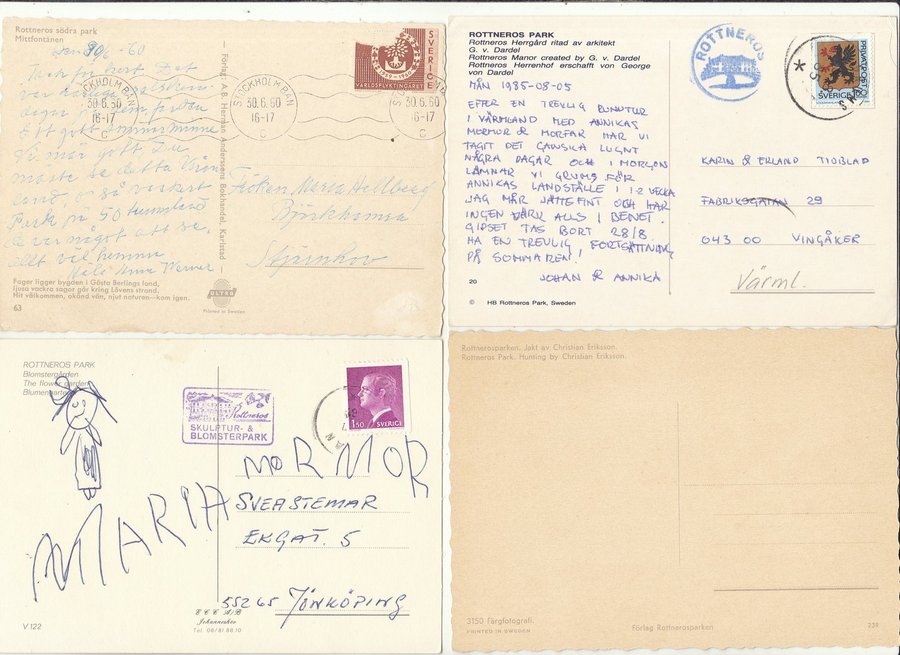 Rottneros södra park
Mittfontänen
30/6 -60
SVERIGE
1959 - 1960
VÄRLDSFLYKTINGÅRET
STOCKHOLM BAN
30.6.60
16-17
C
30.6.60
16-17
C
Ett gott minne
Vi mår gott Du
måste se detta
Park på 50 tunnland
är något att se.
allt väl hemma
Fröken Maria Hellberg
Björkhamra
Stjärnhov
Förlag: A.B. Herman Anderssons Bokhandel, Karlstad
Fager ligger bygden i Gösta Berlings land,
ljusa vackra sagor går kring Lövens strand.
Hit välkommen, okänd vän, njut naturen—kom igen.
63
ULTRA
Printed in Sweden
ROTTNEROS PARK
Rottneros Herrgård ritad av arkitekt
G. v. Dardel
Rottneros Manor created by G. v. Dardel
Rottneros Herrenhof erschafft von George
von Dardel
ROTTNEROS
PRIVATPOST
SVERIGE
MÅN 1985-08-05
EFTER EN TREVLIG RUNDTUR
I VÄRMLAND MED ANNIKAS
MORMOR & MORFAR HAR VI
TAGIT DET GANSKA LUGNT
NÅGRA DAGAR OCH I MORGON
LÄMNAR VI GRUMS FÖR
ANNIKAS LANDSTÄLLE I 1-2 VECKA
JAG MÅR JÄTTEFINT OCH HAR
INGEN VÄRK ALLS I BENET.
GIPSET TAS BORT 28/8.
HA EN TREVLIG FORTSÄTTNING
PÅ SOMMAREN!
JOHAN & ANNIKA
KARIN & ERLAND TIDBLAD
FABRIKSGATAN 29
643 00 VINGÅKER
Värml.
20
© HB Rottneros Park, Sweden
ROTTNEROS PARK
Blomstergården
The flower garden
Blumengarten
Rottneros
SKULPTUR- &
BLOMSTERPARK
1.50 SVERIGE
MORMOR
MARIA
SVEASTEMAR
EKGAT. 5
55265 JÖNKÖPING
V 122
G C C A/B
Johanneshov
Tel. 08/81 88 10
Rottnerosparken. Jakt av Christian Eriksson.
Rottneros Park. Hunting by Christian Eriksson.
3150 Färgfotografi.
PRINTED IN SWEDEN
Förlag Rottnerosparken
239